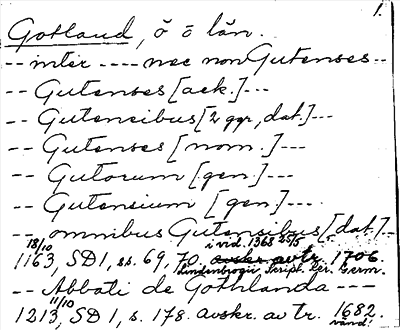 1.
Gotland, ö o län.
-- inter ---- nec non Gutenses --
-- Gutenses [ack.] ---
-- Gutensibus [2 ggr, dat.] ---
-- Gutenses [nom.] ---
-- Gutorum [gen.] ---
-- Gutensium [gen.] ---
-- omnibus Gutensibus [dat.] --
18/10 i vid. 1368 25/5
1163, SD 1, ss. 69, 70. avskr. av tr. 1706.
Lindenbrogii Script. rer. Germ.
-- Abbati de Gothlanda ---
11/10
1213, SD 1, s. 178. avskr. av tr. 1682.